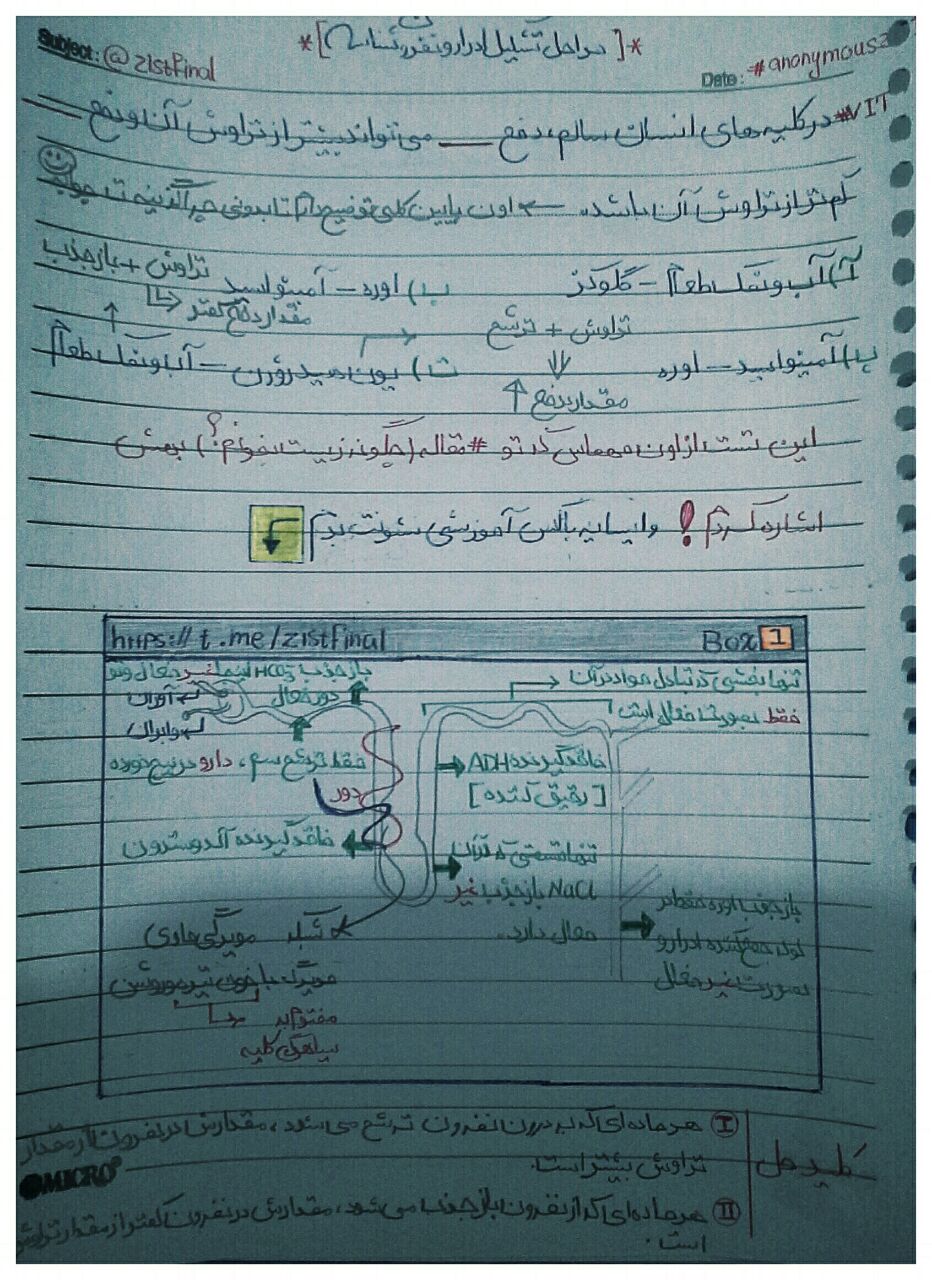 *[مراحل تشکیل ادرار و نفرون شناسی]*
Subject: @zistfinal
Date: #anonymous2
#VIT در کلیه های انسان سالم، دفع ــــ می تواند بیشتر از تراوش آن و دفع ــــ
کم تر از تراوش آن باشد. ← اون پایین کلی توضیح دادم تا بدونی چرا گزینه ت جوابه
آ) آب و نمک طعام – گلوکز
ب) اوره – آمینواسید
تراوش + بازجذب
مقدار دفع کمتر
تراوش + ترشح
پ) آمینواسید – اوره
ت) یون هیدروژن – آب و نمک طعام
مقدار دفع ↑
این تست از اون مهماس که تو #مقاله (چگونه زیست بخونم؟) بهش
اشاره کردم! وایسا یه باکس آموزشی نشونت بدم
https://t.me/zistfinal
Box 1
بازجذب HCO3 اینجا غیرفعال و تو
دور فعال
تنها بخشی که تبادل مواد در آن
فقط بصورت فعال است
آوران
وابران
فقط ترشح سم، دارو در پیچ خورده
دور
فاقد گیرنده ADH
[رقیق کننده]
فاقد گیرنده آلدوسترون
تنها قسمتی که در آن
NaCl بازجذب غیر
فعال دارد.
بازجذب اوره فقط در
لوله جمع کننده ادرار و
بصورت غیرفعال
* شبکه مویرگی حاوی
مویرگ با خون تیره و روشن
سیاهرگ کلیه
کلید حل
I هر ماده ای که به درون نفرون ترشح می شود، مقدارش در نفرون از مقدار
تراوش بیشتر است.
MICRO
II هر ماده ای که از نفرون بازجذب می شود، مقدارش در نفرون کمتر از مقدار تراوش
است.